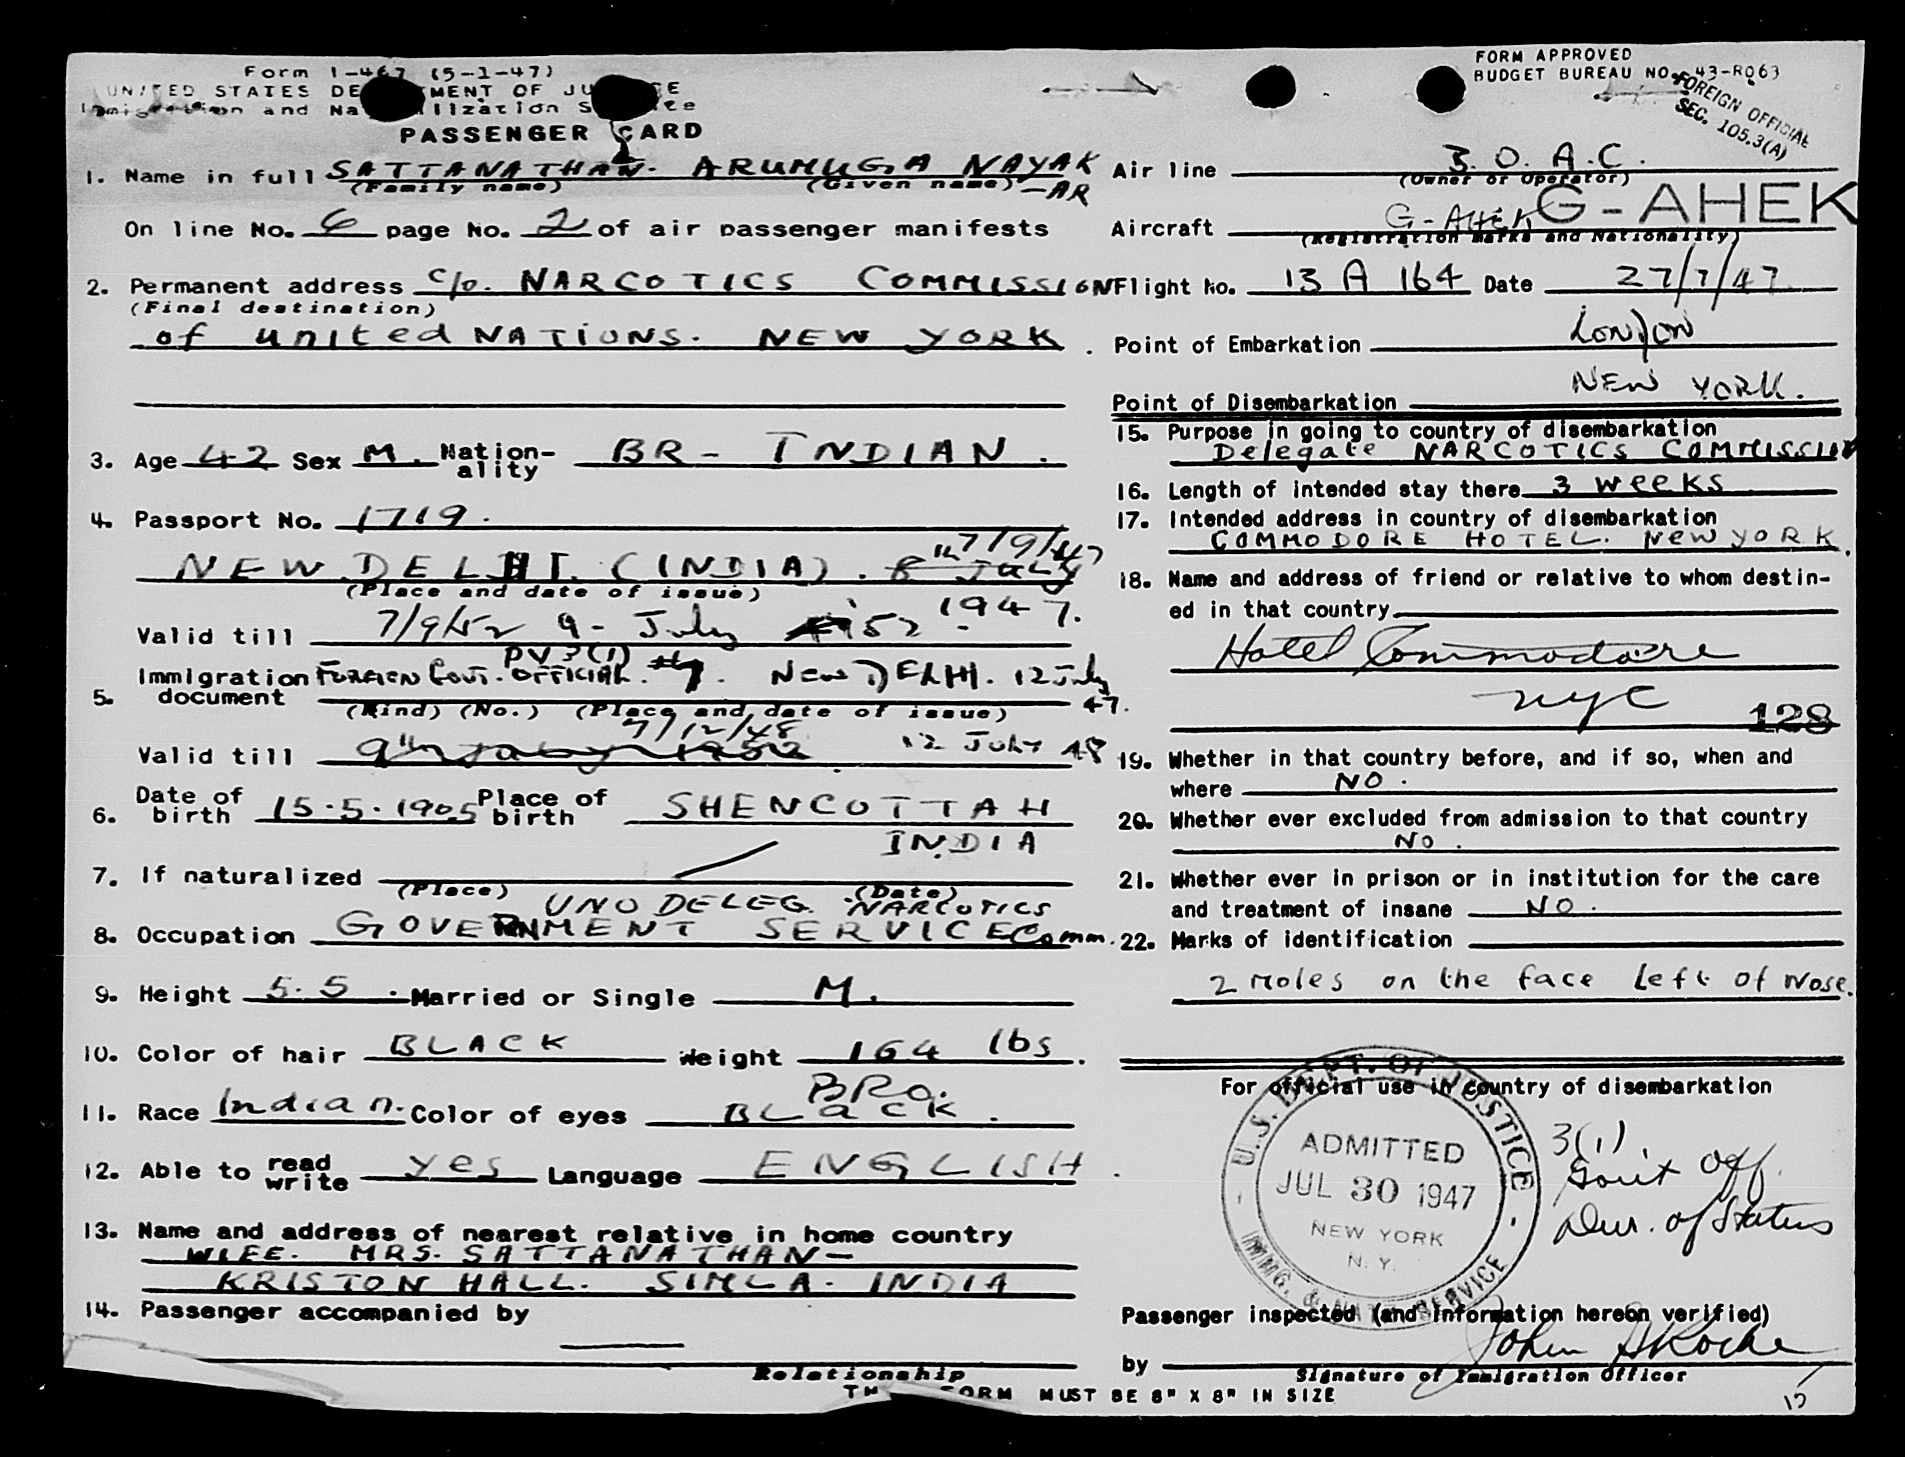 Form I-467 (5-1-47)
UNITED STATES DE MENT OF JU E
and Na lization S
PASSENGER CARD
FORM APPROVED
BUDGET BUREAU NO. 43-R063
FOREIGN OFFICIAL
SEC. 105.3(A)
1. Name in full SATTANATHAN. ARUMUGA NAYAK
-AR
(Family name) (Given name)
On line No. 6 page No. 2 of air passenger manifests
2. Permanent address c/o. NARCOTICS COMMISSION
(Final destination)
of united NATIONS. NEW YORK.
3. Age 42 Sex M. Nation-ality BR- INDIAN.
4. Passport No. 1719.
7/9/47
NEW DELHI (INDIA). 8th July
(Place and date of issue)
1947.
Valid till 7/9/52 9- July 52
PV 3(1)
5. Immigration document FOREIGN Govt. OFFICIAL. NEW DELHI. 12 July
47.
(Kind) (No.) (Place and date of issue)
7/12/48
Valid till 9th July 1952 12 July 48
6. Date of birth 15.5.1905 Place of birth SHENCOTTAH
INDIA
7. If naturalized
(Place) (Date)
UNO DELEG. NARCOTICS
8. Occupation GOVERNMENT SERVICE Comm.
9. Height 5.5. Married or Single M.
10. Color of hair BLACK Weight 164 lbs.
BRO.
11. Race Indian. Color of eyes BLaCK.
12. Able to read write yes Language ENGLISH.
13. Name and address of nearest relative in home country
WIFE. MRS. SATTANATHAN-
KRISTON HALL. SIMLA. INDIA
14. Passenger accompanied by
Relationship
Air line B.O.A.C.
(Owner or Operator)
Aircraft G-AHEK G-AHEK
(Registration marks and Nationality)
Flight No. 13 A 164 Date 27/7/47
Point of Embarkation London
Point of Disembarkation NEW YORK.
15. Purpose in going to country of disembarkation
Delegate NARCOTICS COMMISSION
16. Length of intended stay there 3 weeKS
17. Intended address in country of disembarkation
COMMODORE HOTEL. New YORK.
18. Name and address of friend or relative to whom destin-
ed in that country
Hotel Commodore
nyc 128
19. Whether in that country before, and if so, when and
where NO.
20. Whether ever excluded from admission to that country
NO.
21. Whether ever in prison or in institution for the care
and treatment of insane NO.
22. Marks of identification
2 Moles on the face left of Nose.
For official use in country of disembarkation
U.S. DEPT. OF JUSTICE
ADMITTED
JUL 30 1947
NEW YORK
N. Y.
IMMG. & NATZ. SERVICE
3(1)
Gov't Off.
Dur. of Status
Passenger inspected (and information hereon verified)
by John A Roche
Signature of Immigration Officer
TH FORM MUST BE 8" X 8" IN SIZE